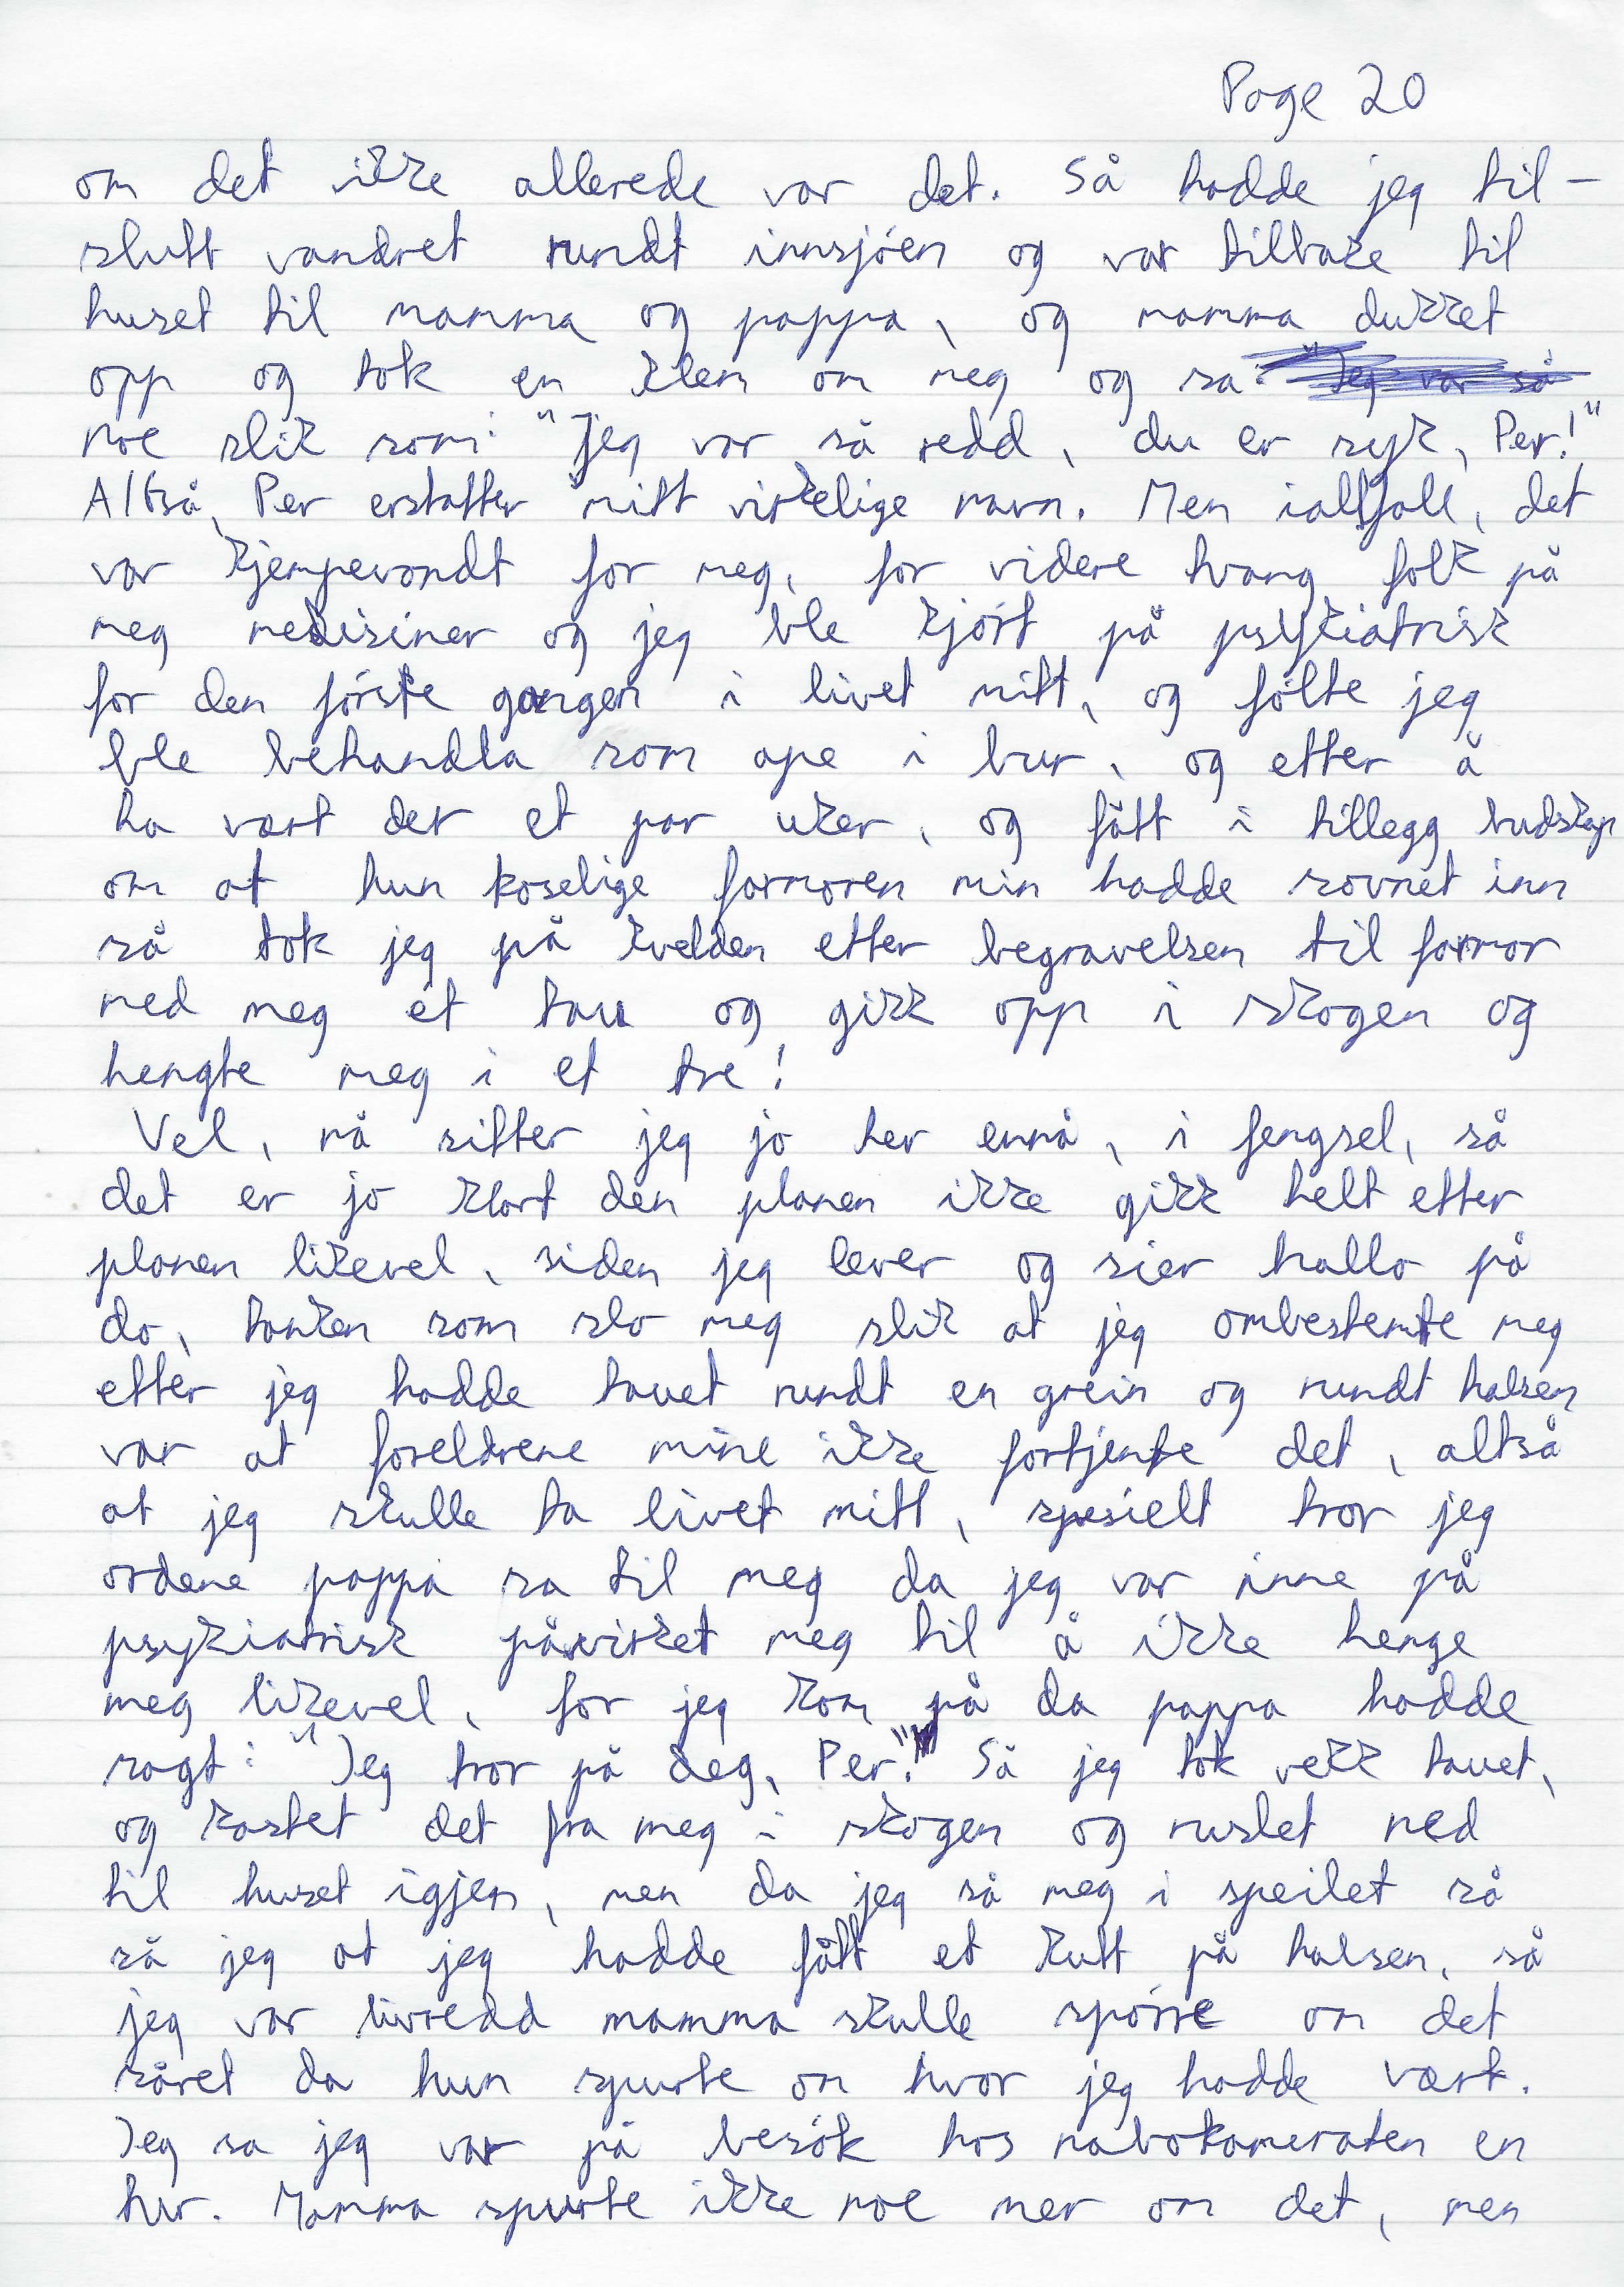 Page 20
om det ikke allerede var det. Så hadde jeg til-
slutt vandret rundt innsjøen og var tilbake til
huset til mamma og pappa, og mamma dukket
opp og tok en klem om meg og sa: "Jeg var så
noe slik som: "Jeg var så redd, du er syk, Per!"
Altså, Per erstatter mitt virkelige navn. Men iallfall, det
var kjempevondt for meg, for videre tvang folk på
meg medisiner og jeg ble kjørt på psykiatrisk
for den første gangen i livet mitt, og følte jeg
ble behandla som ape i bur, og etter å
ha vært der et par uker, og fått i tillegg budskap
om at hun koselige farmoren min hadde sovnet inn
så tok jeg på kvelden etter begravelsen til farmor
med meg et tau og gikk opp i skogen og
hengte meg i et tre!
Vel, nå sitter jeg jo her ennå, i fengsel, så
det er jo klart den planen ikke gikk helt etter
planen likevel, siden jeg lever og sier hallo på
do, tanken som slo meg slik at jeg ombestemte meg
etter jeg hadde tauet rundt en grein og rundt halsen
var at foreldrene mine ikke fortjente det, altså
at jeg skulle ta livet mitt, spesielt tror jeg
ordene pappa sa til meg da jeg var inne på
psykiatrisk påvirket meg til å ikke henge
meg likevel, for jeg kom på da pappa hadde
sagt: "Jeg tror på deg, Per!" Så jeg tok vekk tauet,
og kastet det fra meg i skogen og ruslet ned
til huset igjen, men da jeg så meg i speilet så
så jeg at jeg hadde fått et kutt på halsen, så
jeg var livredd mamma skulle spørre om det
såret da hun spurte om hvor jeg hadde vært.
Jeg sa jeg var på besøk hos nabokameraten en
tur. Mamma spurte ikke noe mer om det, men